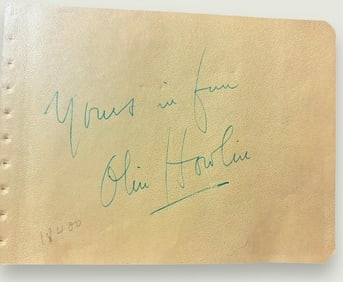 Yours in fun
Olin Howlin
18400